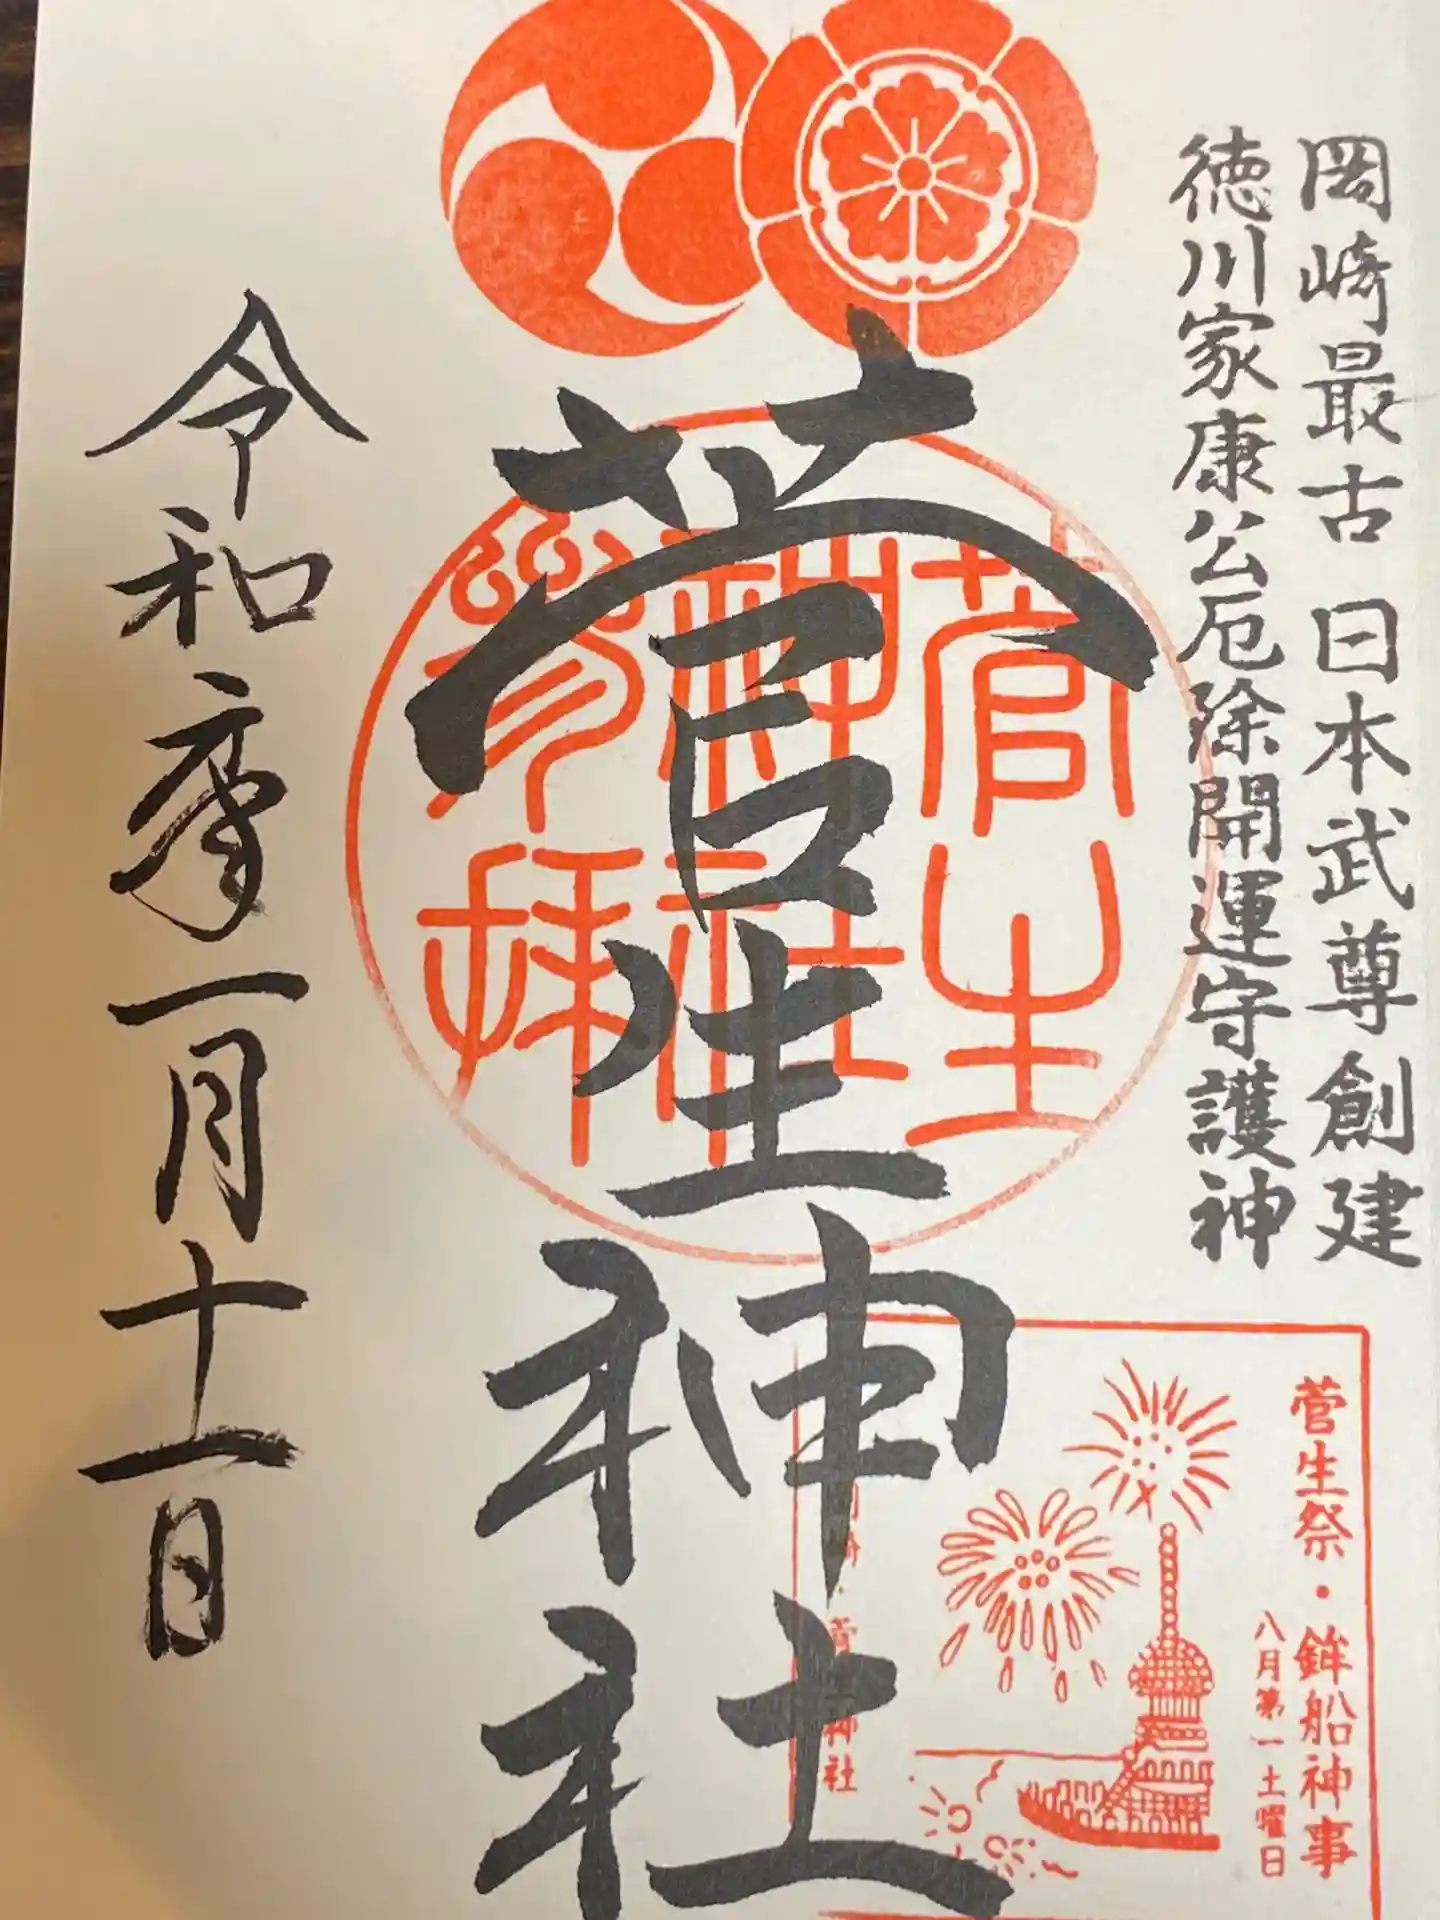 岡崎最古 日本武尊創建
徳川家康公厄除開運守護神
菅生神社
菅生
神社
参拝
令和
一月十一日
菅生祭・鉾船神事
八月第一土曜日